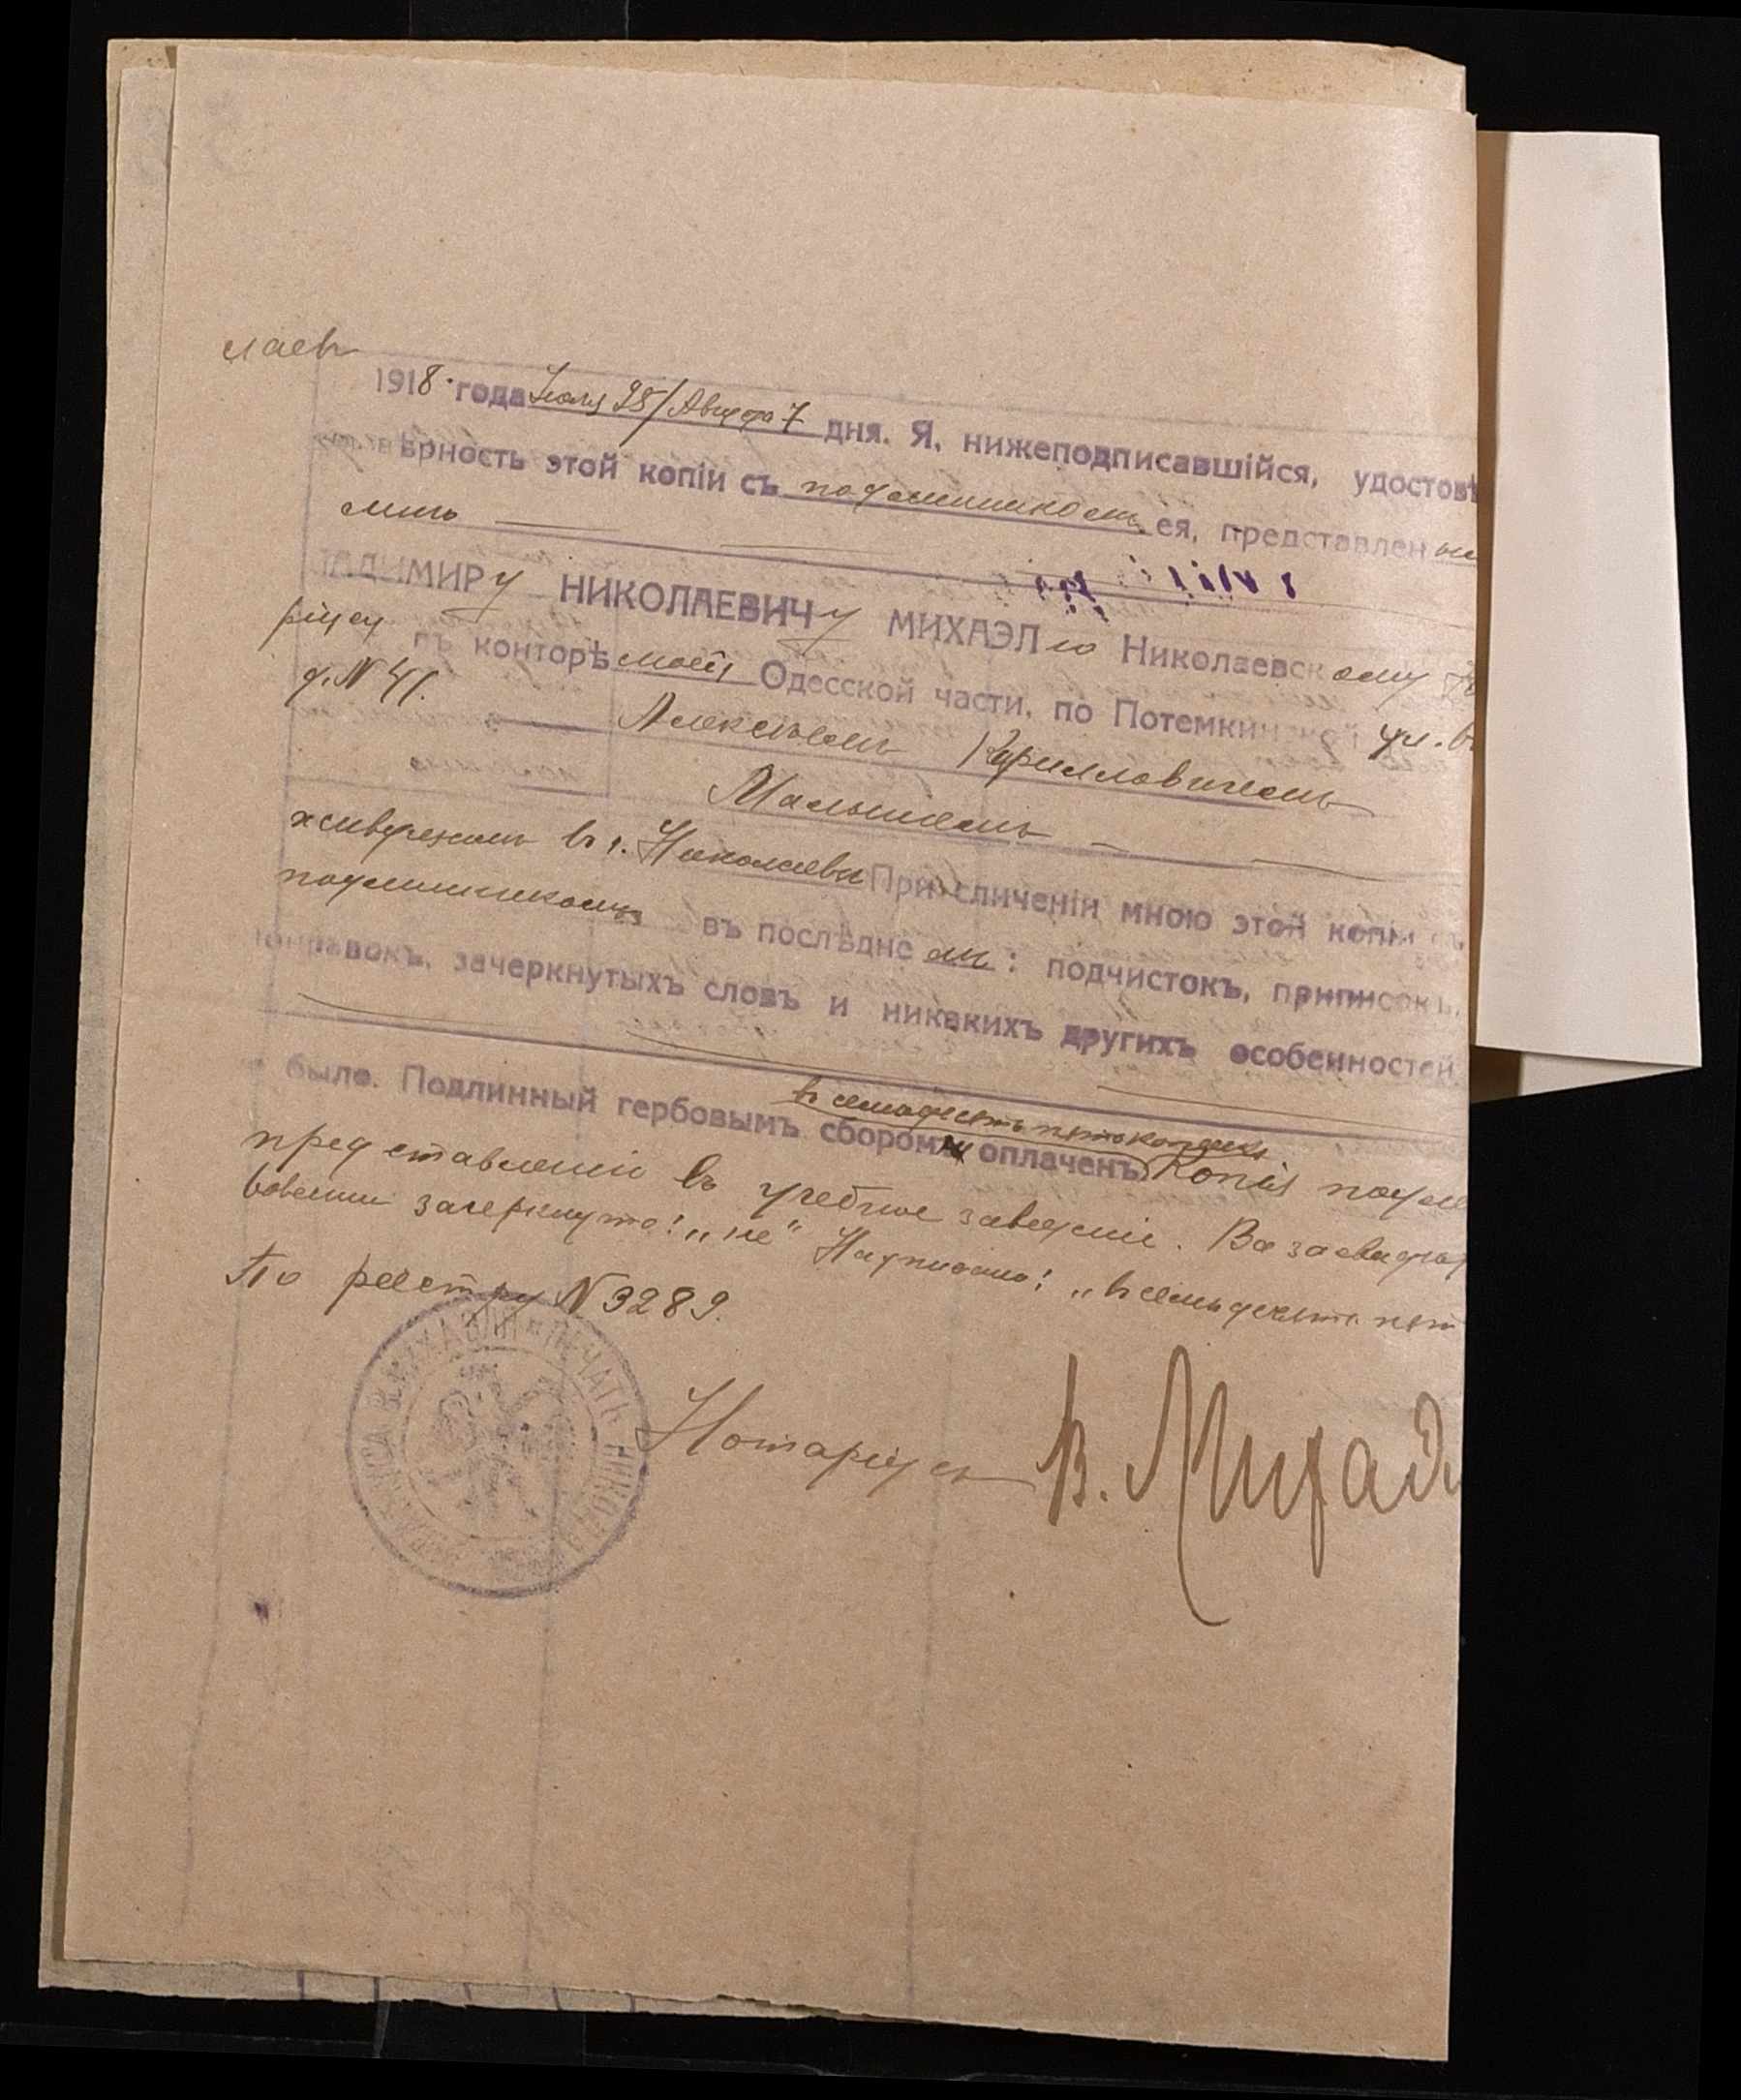 лаев
1918 года Іюля 25/Августа 7 дня. Я, нижеподписавшійся, удостов
вѣрность этой копіи съ подлинникомъ ея, представлен
мнѣ
ЛАДИМИРу НИКОЛАЕВИЧу МИХАЭЛю Николаевскому
ріусу въ конторѣ моей Одесской части, по Потемкинской ул. в
д. N 41. Алексѣемъ Кирилловичемъ
Малышемъ
живущимъ въ г. Николаевѣ При сличеніи мною этой копіи съ
подлинникомъ въ послѣднемъ: подчистокъ, приписокъ,
поправокъ, зачеркнутыхъ словъ и никакихъ другихъ особенностей
въ семьдесятъ пять копѣекъ
было. Подлинный гербовымъ сборомъ не оплаченъ Копія подле
представленію въ учебное заведеніе. Въ засвидѣ
вованіи зачеркнуто: „не" Надписано: „въ семьдесятъ пят
По реестру N 3289.
Нотаріусъ В. Михаэ
ПЕЧАТЬ НИКОЛА НОТАРІУСА В. Н. МИХАЭЛИ